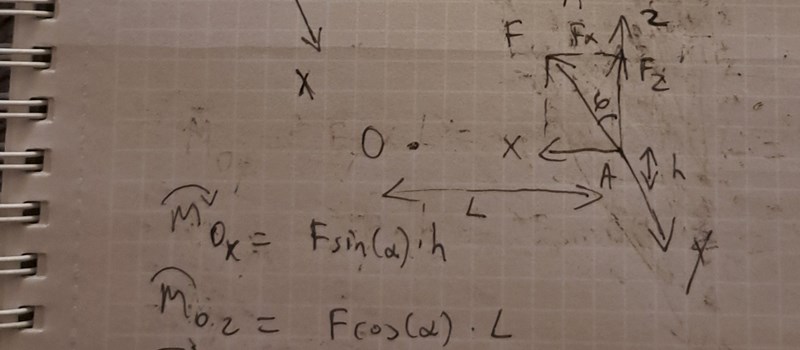 z
F Fx
Fz
X
φ
O X
A h
L
y
M Ox = Fsin(α)·h
M O.z = Fcos(α)·L